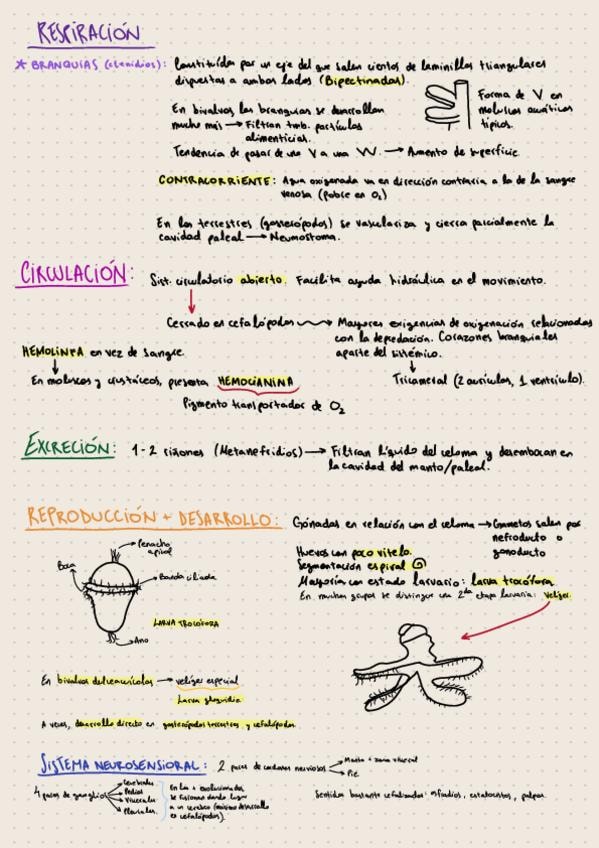 RESPIRACIÓN
* BRANQUIAS (ctenidios): Constituídas por un eje del que salen cientos de laminillas triangulares
dispuestas a ambos lados (Bipectinadas).
En bivalvos las branquias se desarrollan
mucho más → Filtran tmb. partículas
alimenticias.
Forma de V en
moluscos acuáticos
típicos.
Tendencia de pasar de una V a una W. → Aumento de superficie.
CONTRACORRIENTE: Agua oxigenada va en dirección contraria a la de la sangre
venosa (pobre en O₂)
En los terrestres (gasterópodos) se vasculariza y cierra parcialmente la
cavidad paleal → Neumostoma.
CIRCULACIÓN: Sist. circulatorio abierto. Facilita ayuda hidráulica en el movimiento.
Cerrado en cefalópodos → Mayores exigencias de oxigenación relacionadas
con la depredación. Corazones branquiales
aparte del sistémico.
HEMOLINFA en vez de sangre.
En moluscos y crustáceos, presenta HEMOCIANINA
Tricameral (2 aurículas, 1 ventrículo).
Pigmento transportador de O₂
EXCRECIÓN: 1-2 riñones (Metanefridios) → Filtran líquido del celoma y desembocan en
la cavidad del manto/paleal.
REPRODUCCIÓN + DESARROLLO: Gónadas en relación con el celoma → Gametos salen por
nefroducto o
gonoducto
Huevos con poco vitelo.
Segmentación espiral
Mayoría con estado larvario: larva trocófora.
En muchos grupos se distingue una 2da etapa larvaria: Velíger.
Penacho
apical
Boca
Banda ciliada
LARVA TROCÓFORA
Ano
En bivalvos dulceacuícolas → velíger especial
Larva gloquidio
A veces, desarrollo directo en gasterópodos terrestres y cefalópodos
SISTEMA NEUROSENSIORAL: 2 pares de cordones nerviosos
Manto + zona visceral
Pie
4 pares de ganglios
Cerebrales
Pedios
Viscerales
Pleurales
En los + evolucionados
se fusionan dando lugar
a un cerebro (máximo desarrollo
en cefalópodos).
Sentidos bastante cefalizados: osfradios, estatocistos, palpos.